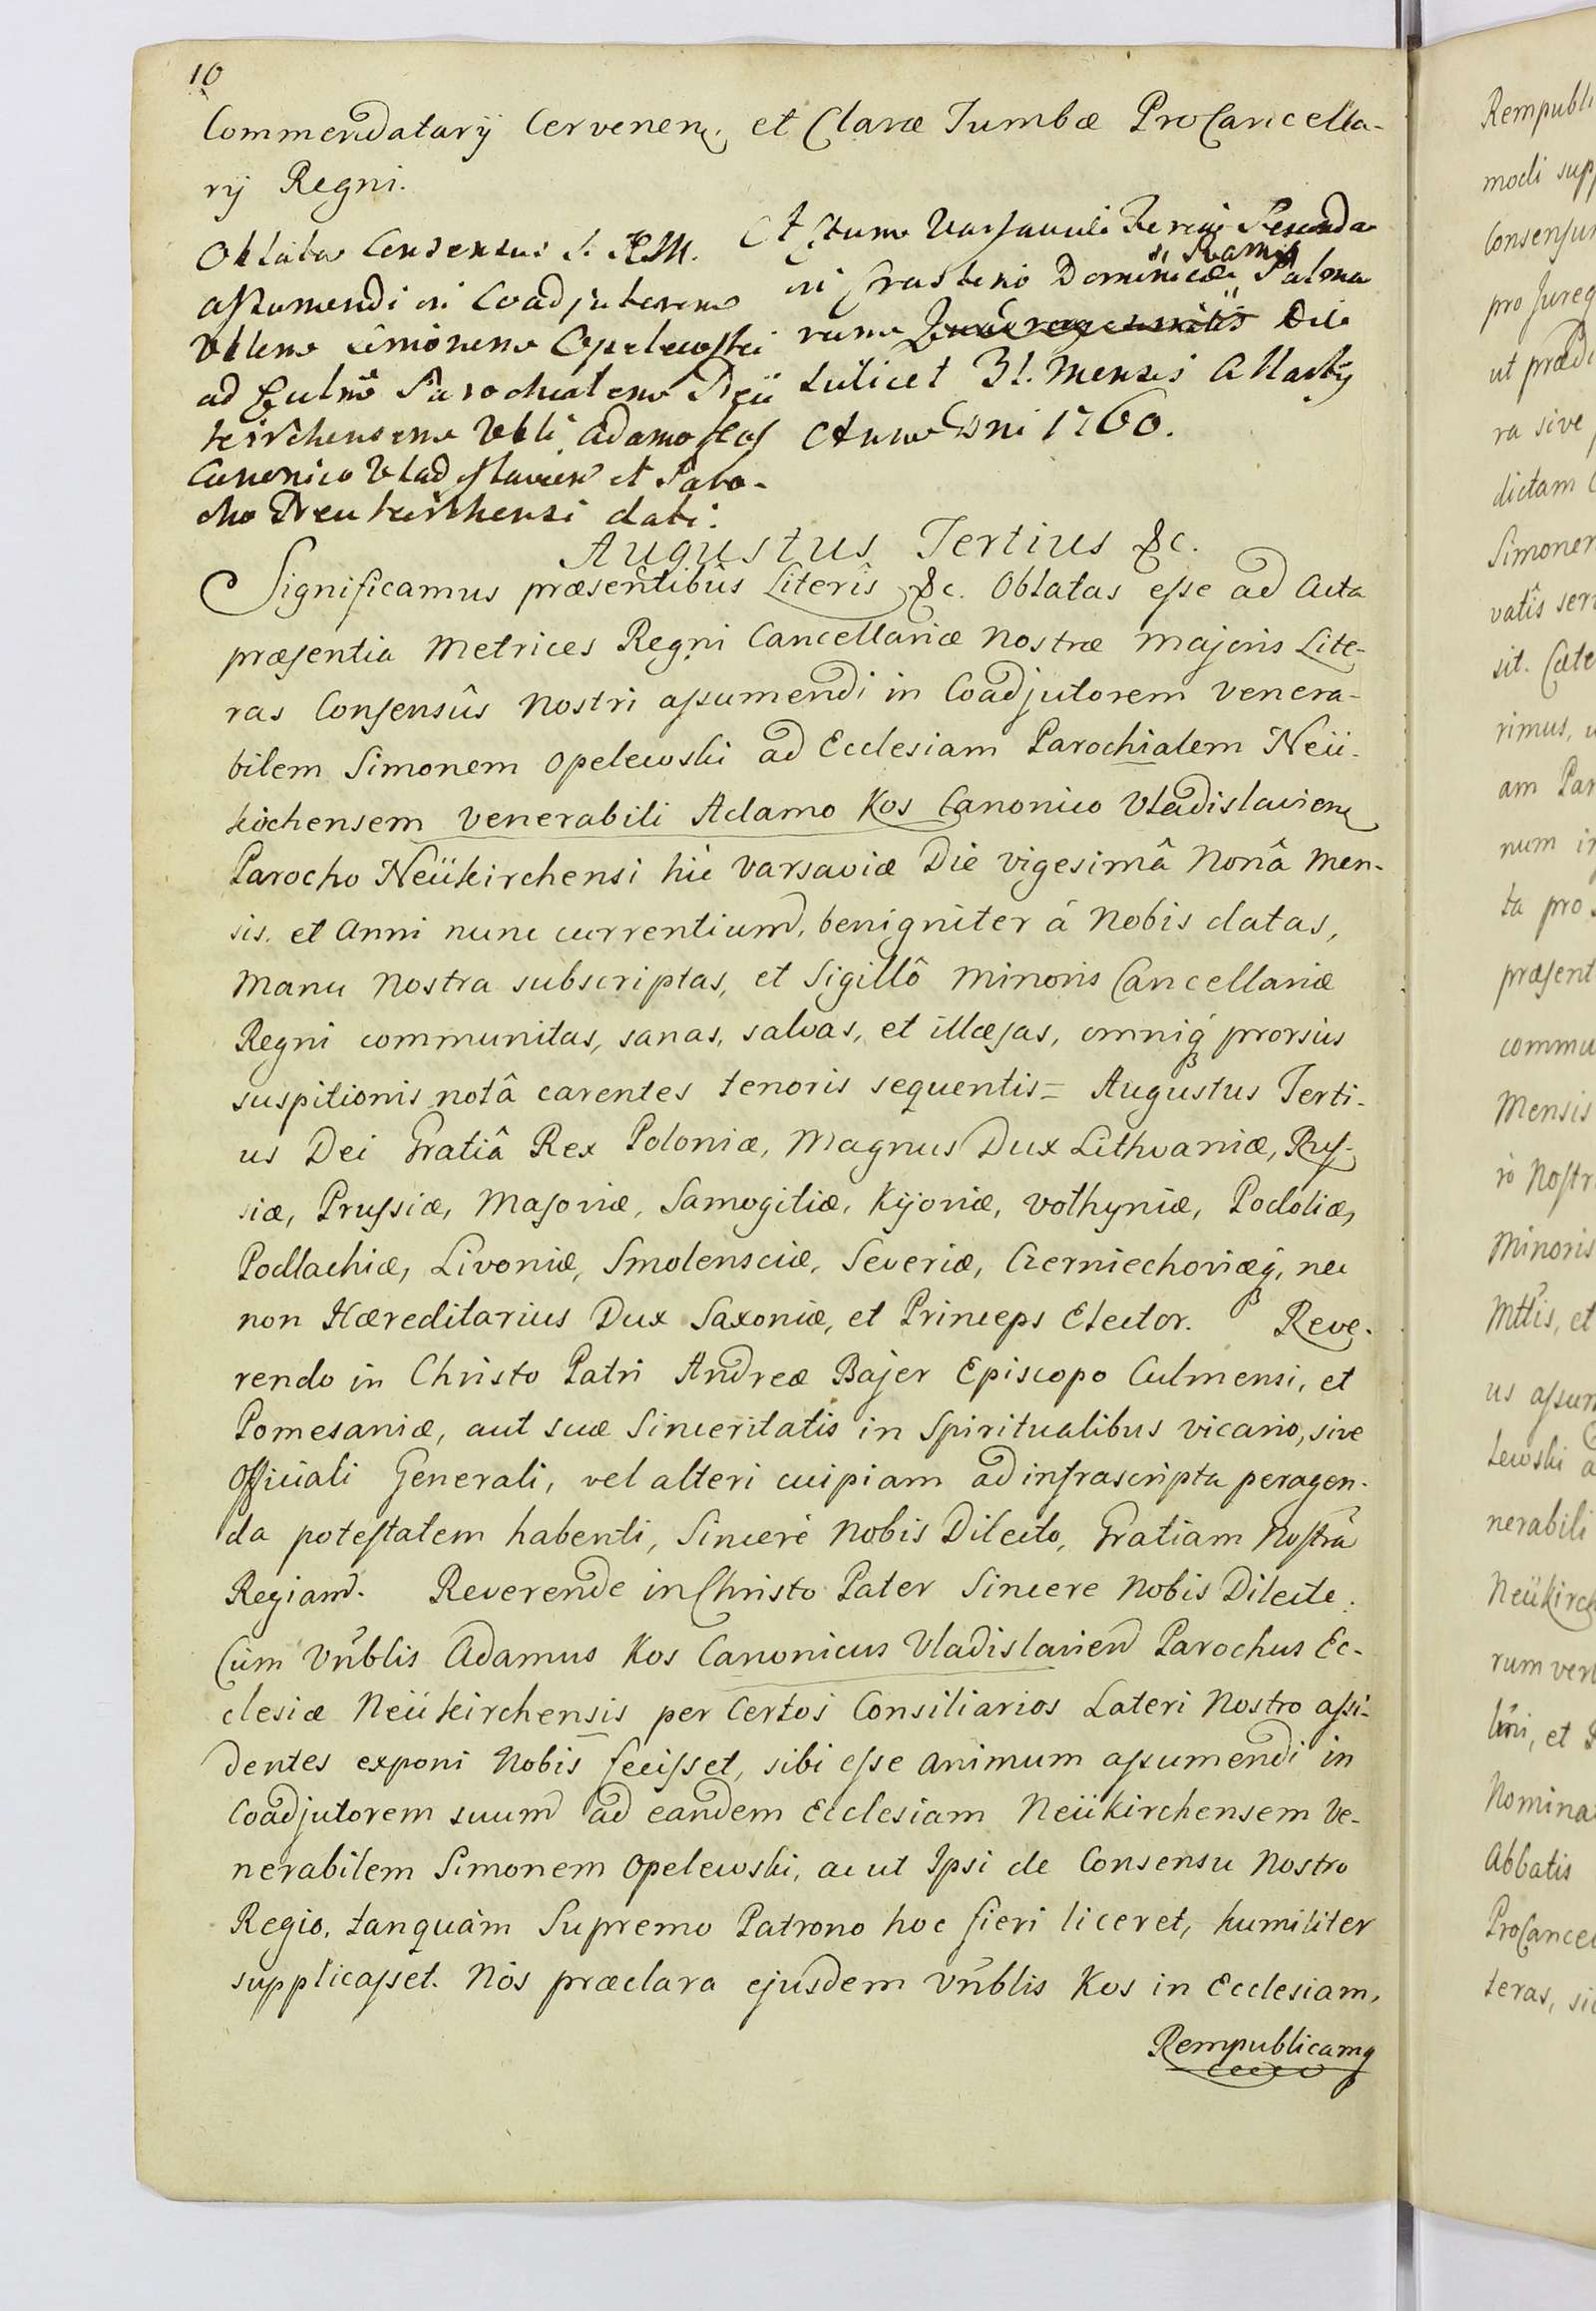 10
Commendatarÿ Cervenen. et Claræ Tumbæ ProCancella-
rÿ Regni.
Oblata Consensus S. R. M.
assumendi in Coadjutorem
Vblem Simonem Opelewski
ad Ecclm Parochialem Neü
kirchensem Vbli Adamo Kos
Canonico Vladislavien et Paro-
cho Neukirchensi dati.
Actum Varsaviæ Feria Secunda
in Crastino Dominicæ Palma
si Ramis
rum Die
scilicet 31. Mensis Martÿ
Anno Dni 1760.
Augustus Tertius &c.
Significamus præsentibûs Literîs &c. Oblatas esse ad Acta
præsentia Metrices Regni Cancellariæ Nostræ Majoris Lite-
ras Consensûs Nostri assumendi in Coadjutorem Venera-
bilem Simonem Opelewski ad Ecclesiam Parochialem Neü-
kirchensem Venerabili Adamo Kos Canonico Vladislavien
Parocho Neükirchensi hic Varsaviæ Die Vigesimâ Nonâ Men-
sis. et Anni nunc currentium, benigniter à Nobis datas,
Manu Nostra subscriptas, et Sigillô Minoris Cancellariæ
Regni communitas, sanas, salvas, et illæsas, omniq prorsùs
suspitionis notâ carentes tenoris sequentis = Augustus Terti-
us Dei Gratiâ Rex Poloniæ, Magnus Dux Lithvaniæ, Rus-
siæ, Prussiæ, Masoviæ, Samogitiæ, Kijoviæ, Volhyniæ, Podoliæ,
Podlachiæ, Livoniæ, Smolensciæ, Severiæ, Czerniechoviæq, nec
non Hæreditarius Dux Saxoniæ, et Princeps Elector. Reve-
rendo in Christo Patri Andreæ Bajer Episcopo Culmensi, et
Pomesaniæ, aut suæ Sinceritatis in Spiritualibus vicario, sive
Officiali Generali, vel alteri cuipiam ad infrascripta peragen-
da potestatem habenti, Sincerè Nobis Dilecto, Gratiam Nostrã
Regiam. Reverende in Christo Pater Sincere Nobis Dilecte.
Cùm Vnblis Adamus Kos Canonicus Vladislavien Parochus Ec-
clesiæ Neükirchensis per Certos Consiliarios Lateri Nostro assi-
dentes exponi Nobis fecisset, sibi esse animum assumendi in
Coadjutorem suum ad eandem Ecclesiam Neükirchensem Ve-
nerabilem Simonem Opelewski, ac ut Ipsi de Consensu Nostro
Regio, tanquàm Supremo Patrono hoc fieri liceret, humiliter
supplicasset. Nos præclara ejusdem Vnblis Kos in Ecclesiam,
Rempublicamq
Rempubli
modi sup
Consensum
pro Jureq
ut prædi
ra sive
dictam C
Simonem
vatîs ser
sit. Cæte
rimus, u
am Par
num in
ta pro
præsent
commu
Mensis
rò Nostr
Minoris
Mttis, et
us assum
lewski a
nerabili
Neükirch
rum ver
lini, et
Nomina
Abbatis
ProCance
teras, si